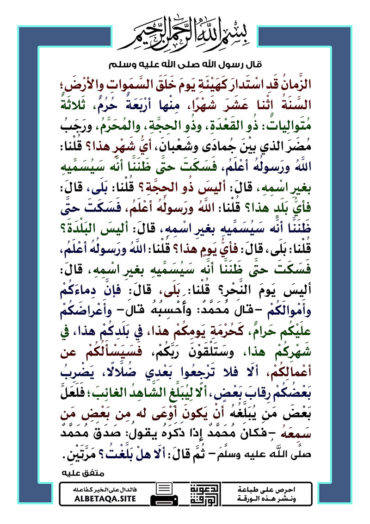 بسم الله الرحمن الرحيم
قال رسول الله صلى الله عليه وسلم
الزَّمانُ قَدِ اسْتَدارَ كَهَيْئَةِ يَومَ خَلَقَ السَّمَواتِ والأرْضَ؛
السَّنَةُ اثْنا عَشَرَ شَهْرًا، مِنْها أرْبَعَةٌ حُرُمٌ، ثَلاثَةٌ
مُتَوالِياتٌ: ذُو القَعْدَةِ، وذُو الحِجَّةِ، والمُحَرَّمُ، ورَجَبُ
مُضَرَ الذي بيْنَ جُمادَى وشَعْبانَ، أيُّ شَهْرٍ هذا؟ قُلْنا:
اللَّهُ ورَسولُهُ أعْلَمُ، فَسَكَتَ حتَّى ظَنَنَّا أنَّه سَيُسَمِّيهِ
بغيرِ اسْمِهِ، قالَ: أليسَ ذُو الحِجَّةِ؟ قُلْنا: بَلَى، قالَ:
فأيُّ بَلَدٍ هذا؟ قُلْنا: اللَّهُ ورَسولُهُ أعْلَمُ، فَسَكَتَ حتَّى
ظَنَنَّا أنَّه سَيُسَمِّيهِ بغيرِ اسْمِهِ، قالَ: أليسَ البَلْدَةَ؟
قُلْنا: بَلَى، قالَ: فأيُّ يَومٍ هذا؟ قُلْنا: اللَّهُ ورَسولُهُ أعْلَمُ،
فَسَكَتَ حتَّى ظَنَنَّا أنَّه سَيُسَمِّيهِ بغيرِ اسْمِهِ، قالَ:
أليسَ يَومَ النَّحْرِ؟ قُلْنا: بَلَى، قالَ: فإنَّ دِماءَكُمْ
وأَمْوالَكُمْ –قالَ مُحَمَّدٌ: وأَحْسِبُهُ قالَ– وأَعْراضَكُمْ
علَيْكُم حَرامٌ، كَحُرْمَةِ يَومِكُمْ هذا، في بَلَدِكُمْ هذا، في
شَهْرِكُمْ هذا، وسَتَلْقَوْنَ رَبَّكُمْ، فَسَيَسْأَلُكُمْ عن
أعْمالِكُمْ، ألَا فلا تَرْجِعُوا بَعْدِي ضُلَّالًا، يَضْرِبُ
بَعْضُكُمْ رِقابَ بَعْضٍ، ألَا لِيُبَلِّغِ الشَّاهِدُ الغائِبَ؛ فَلَعَلَّ
بَعْضَ مَن يُبَلَّغُهُ أنْ يَكونَ أوْعَى له مِن بَعْضِ مَن
سَمِعَهُ –فَكانَ مُحَمَّدٌ إذا ذَكَرَهُ يقولُ: صَدَقَ مُحَمَّدٌ
صلَّى اللَّه عليه وسلَّمَ– ثُمَّ قالَ: ألَا هلْ بَلَّغْتُ؟ مَرَّتَيْنِ.
متفق عليه
احرص على طباعة
ونشر هذه الورقة
الدعوية
الورقة
فالدال على الخير كفاعله
ALBETAQA.SITE